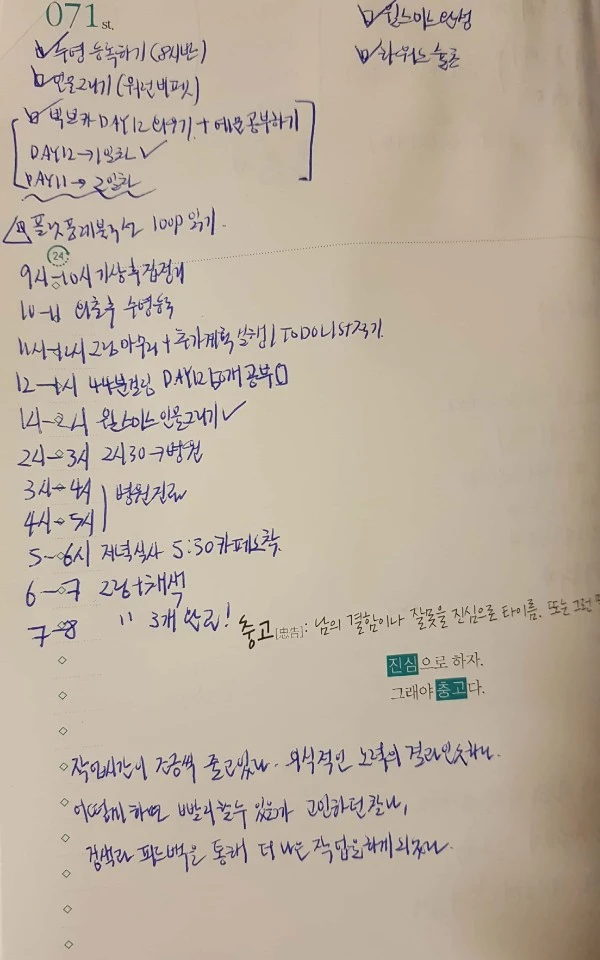 071st.
수영 등록하기 (8시반)
인물그리기 (워런버핏)
DAY12 외우기 + 예문공부하기
DAY12→1일차 ✓
DAY11→2일차
100p 읽기.
윌스미스 완성
하워드 슐츠
24
9시-10시 기상후 집정리
10-11 외출후 수영등록
11시-12시 그림마무리 + 추가계획 실행 / TODOLIST적기
12-1시 44분걸림 DAY12 공부
1시-2시 윌스미스 인물그리기 ✓
2시-3시 2시30→병원
3시-4시 병원진료
4시-5시
5-6시 저녁식사 5:30카페도착.
6-7 그림+채색
7-8 " 3개 완료!
충고[忠告]: 남의 결함이나 잘못을 진심으로 타이름. 또는 그런
진심으로 하자.
그래야 충고다.
작업시간이 조금씩 줄고있다. 의식적인 노력의 결과인듯하다.
어떻게하면 빨리할수 있을까 고민하던찰나,
검색과 피드백을 통해 더 나은 작업을하게되었다.